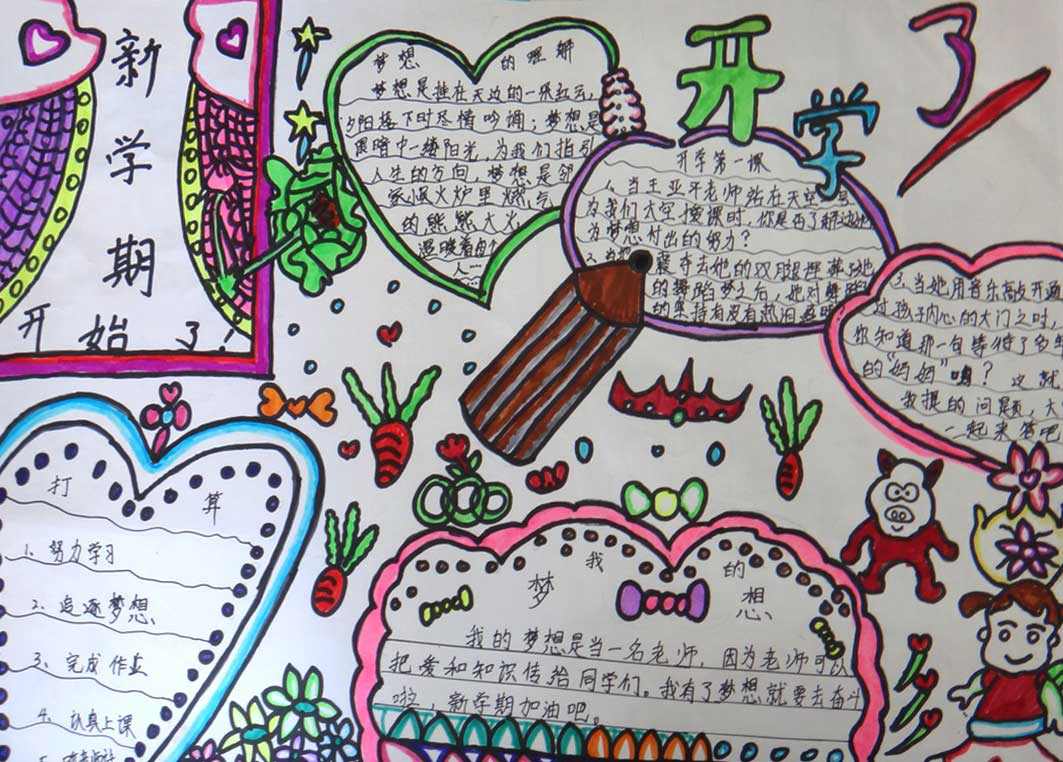 新学期
开始了！
开学了
梦想的理解
梦想是挂在天边的一张红云，
夕阳接下时尽情吟诵；梦想是
黑暗中一缕阳光，为我们指引
人生的方向，梦想是邻
家暖火炉里燃气
的熊熊大火
温暖着自
人……
开学第一课
1、当王亚平老师站在天空
为我们太空授课时，你是否了解过她
为梦想付出的努力？
2、当
夺去她的双腿
的舞蹈梦之后，她对舞蹈
的坚持有没有
3、当她用音乐敲开通
过孩子内心的大门之时，
你知道那一句等待了多
的“妈妈”吗？这就
我提的问题，大
一起来答吧
打算
1、努力学习
2、追逐梦想
3、完成作业
4、认真上课
5、
我的梦想
我的梦想是当一名老师，因为老师可以
把爱和知识传给同学们。我有了梦想就要去奋斗
啦，新学期加油吧。